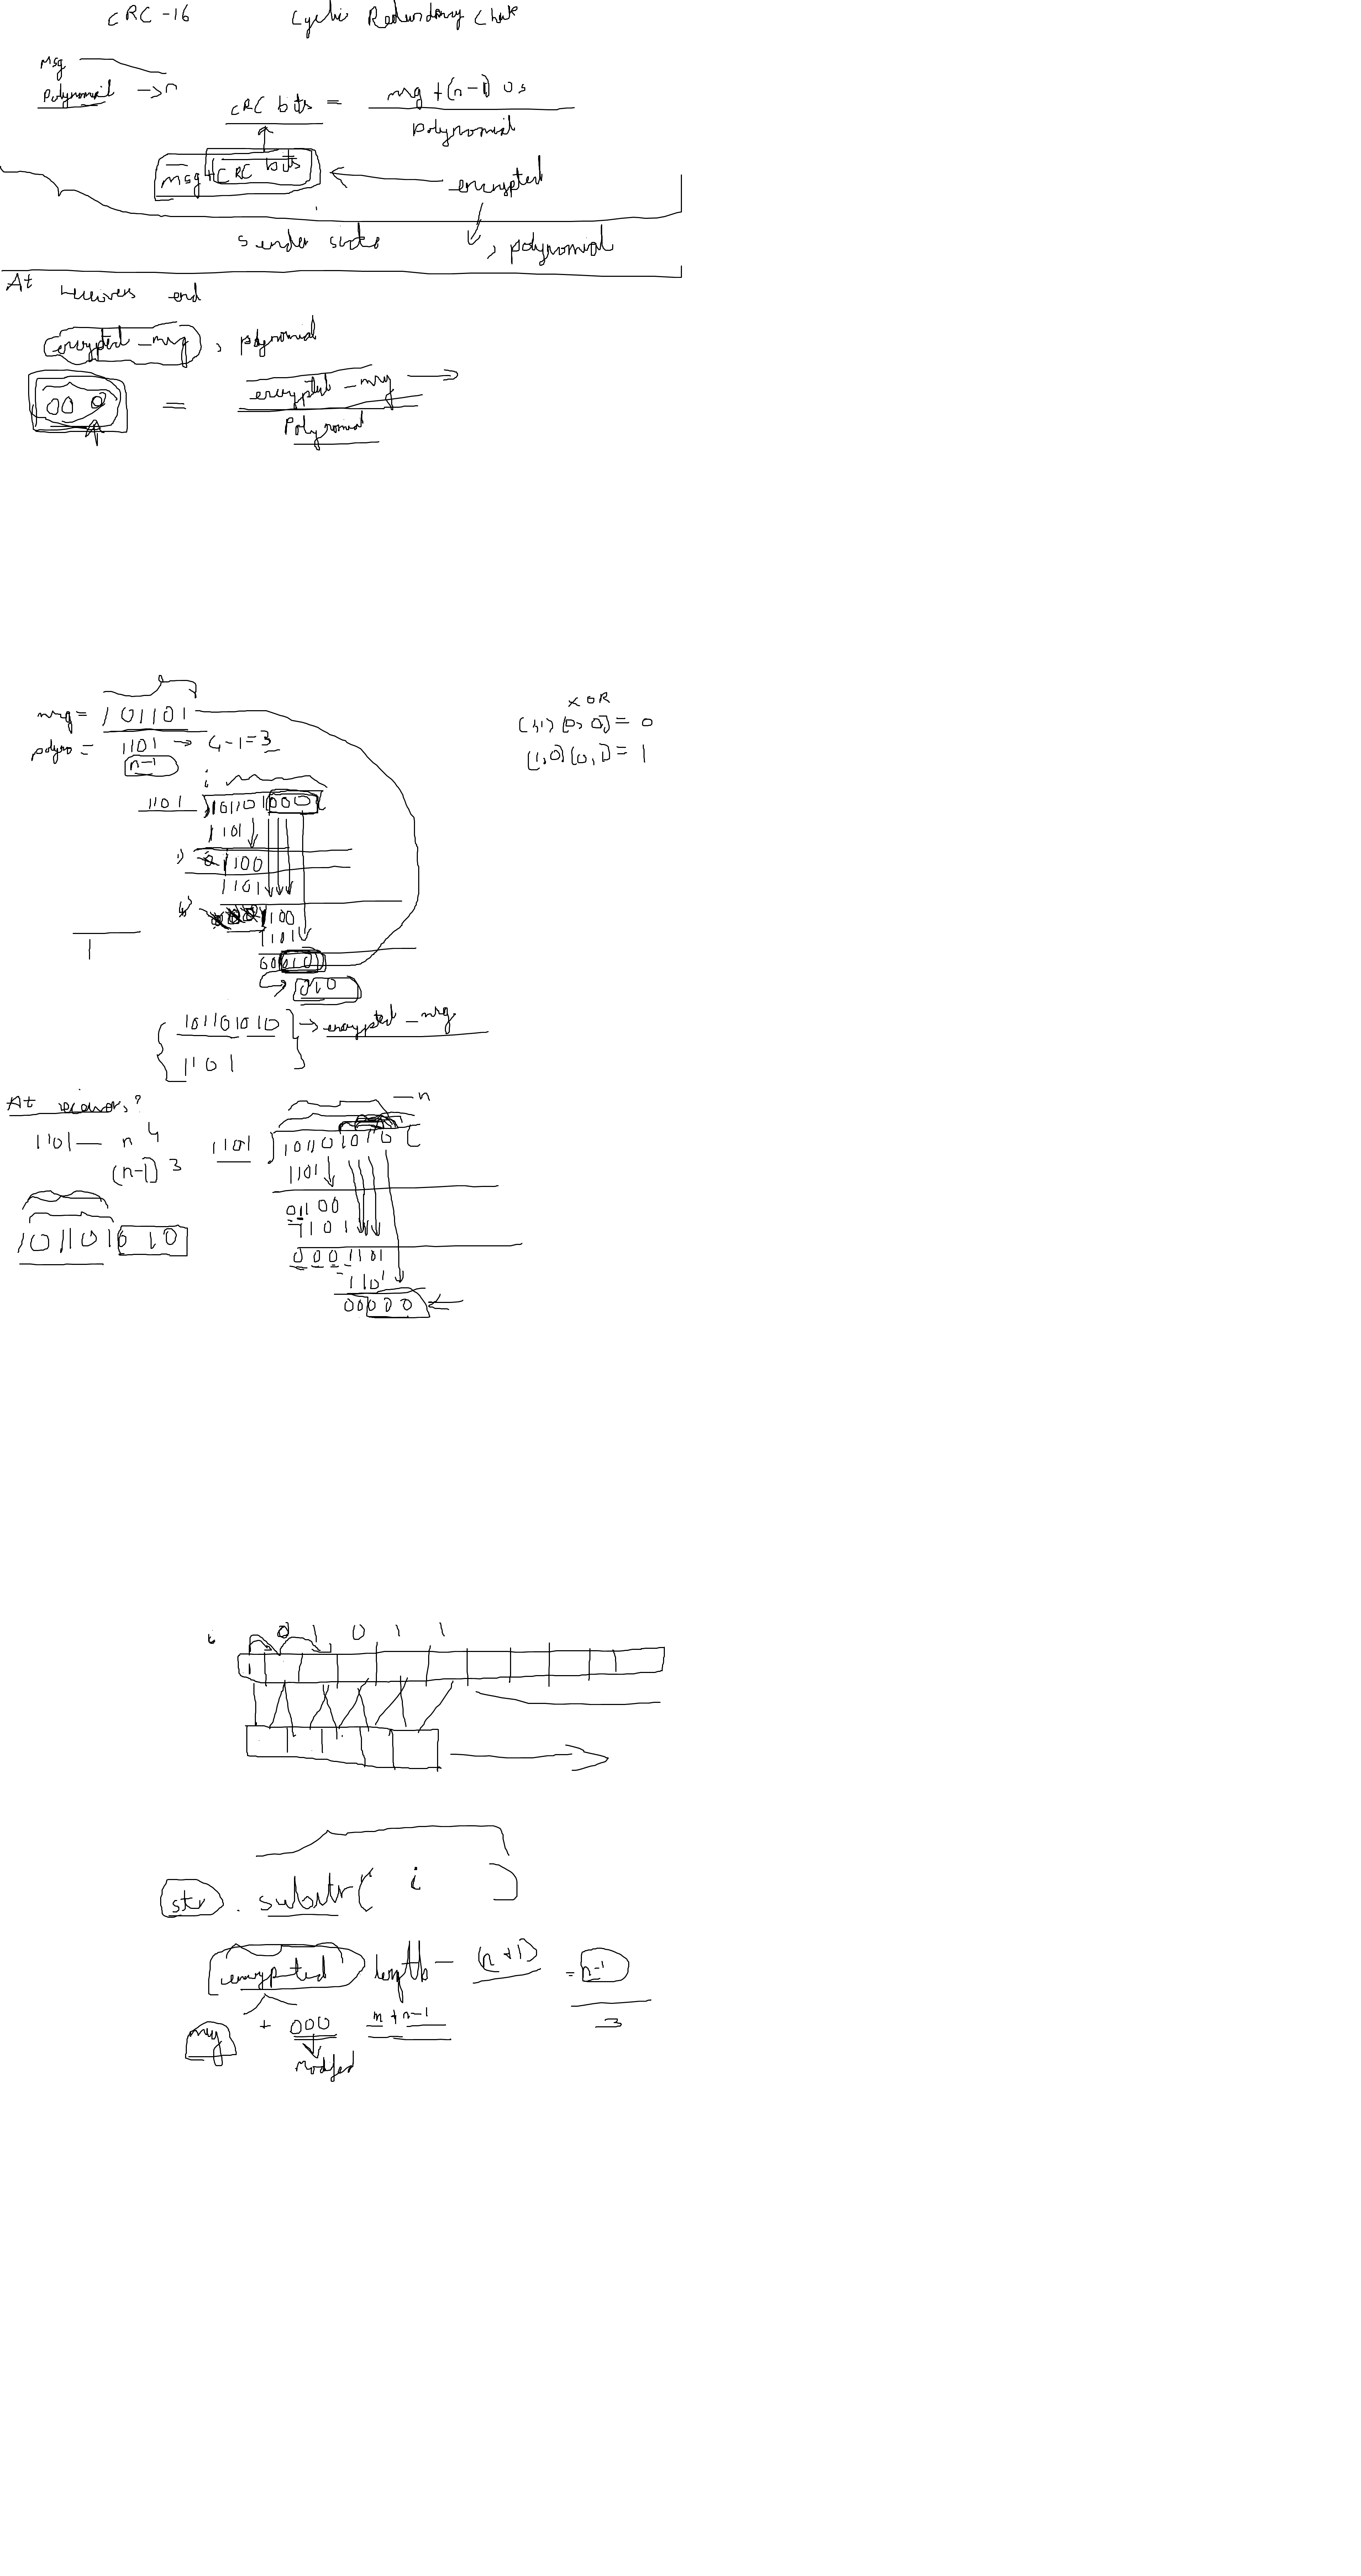 CRC-16 Cyclic Redundancy Check
Msg
Polynomial → n
CRC bits = msg + (n-1) 0s
Polynomial
msg + CRC bits ← encrypted
sender side , polynomial
At receivers end
encrypted_msg , polynomial
000 = encrypted_msg →
Polynomial
msg = 101101
polyno = 1101 → 4-1=3
n-1
XOR
(1,1) (0,0) = 0
(1,0) (0,1) = 1
i
1101 ) 101101000 (
1101
1) 01100
1101
4) 0001100
1101
00010
010
1
101101010 → encrypted_msg
1101
At receivers?
1101 — n 4
(n-1) 3
101101010
— n
1101 ) 101101010 (
1101
01100
1101
0001101
1101
00000
i 0 1 0 1 1
1
str . substr( i )
encrypted length - (n+1) = n-1
msg + 000 m+n-1 3
modified